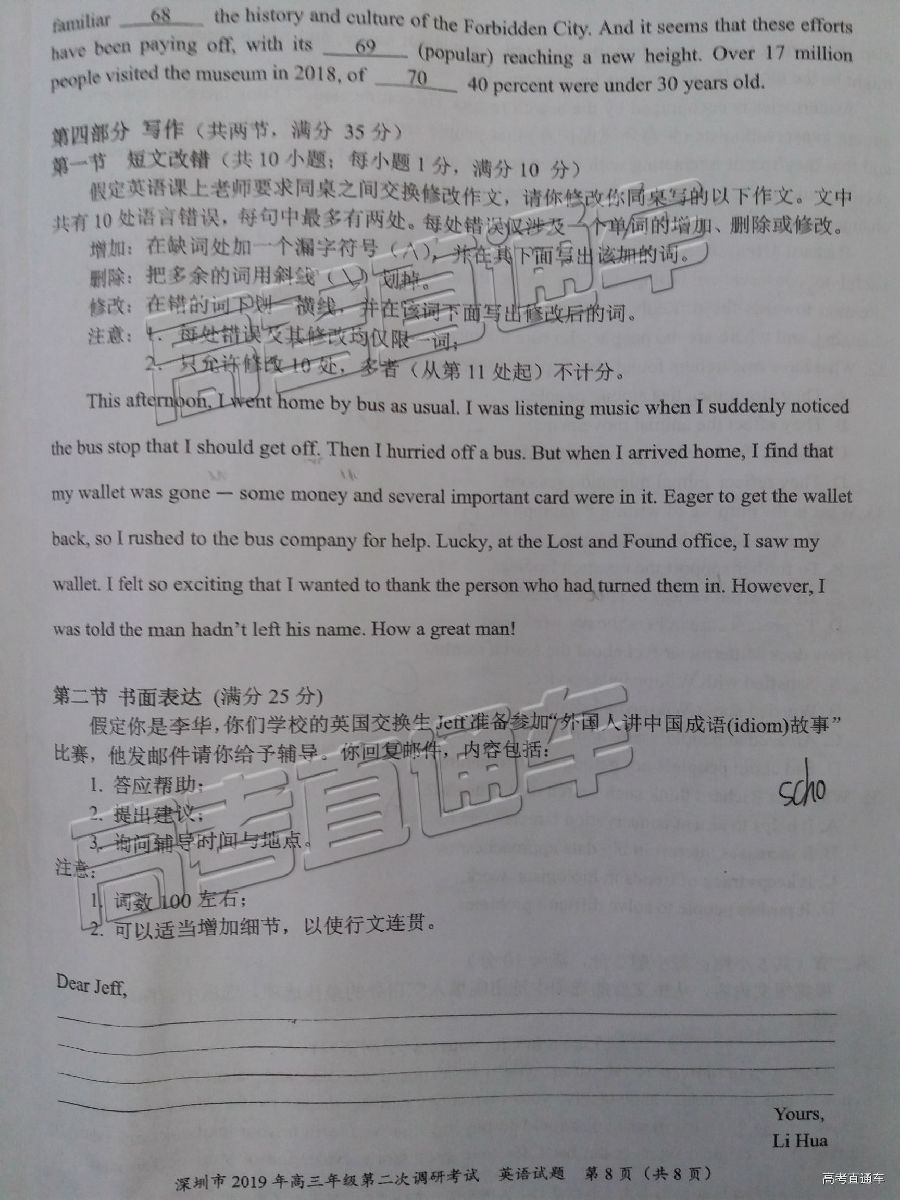 familiar 68 the history and culture of the Forbidden City. And it seems that these efforts
have been paying off, with its 69 (popular) reaching a new height. Over 17 million
people visited the museum in 2018, of 70 40 percent were under 30 years old.
第四部分 写作（共两节，满分 35 分）
第一节 短文改错（共 10 小题；每小题 1 分，满分 10 分）
假定英语课上老师要求同桌之间交换修改作文，请你修改你同桌写的以下作文。文中
共有 10 处语言错误，每句中最多有两处。每处错误仅涉及一个单词的增加、删除或修改。
增加：在缺词处加一个漏字符号（∧），并在其下面写出该加的词。
删除：把多余的词用斜线（\）划掉。
修改：在错的词下划一横线，并在该词下面写出修改后的词。
注意：1. 每处错误及其修改均仅限一词；
2. 只允许修改 10 处，多者（从第 11 处起）不计分。
This afternoon, I went home by bus as usual. I was listening music when I suddenly noticed
the bus stop that I should get off. Then I hurried off a bus. But when I arrived home, I find that
my wallet was gone — some money and several important card were in it. Eager to get the wallet
back, so I rushed to the bus company for help. Lucky, at the Lost and Found office, I saw my
wallet. I felt so exciting that I wanted to thank the person who had turned them in. However, I
was told the man hadn't left his name. How a great man!
第二节 书面表达 (满分 25 分)
假定你是李华，你们学校的英国交换生 Jeff 准备参加“外国人讲中国成语(idiom)故事”
比赛，他发邮件请你给予辅导。你回复邮件，内容包括：
1. 答应帮助；
2. 提出建议；
3. 询问辅导时间与地点。
scho
注意：
1. 词数 100 左右；
2. 可以适当增加细节，以使行文连贯。
Dear Jeff,
Yours,
Li Hua
深圳市 2019 年高三年级第二次调研考试 英语试题 第 8 页（共 8 页）
高考直通车
高考直通车
高考直通车